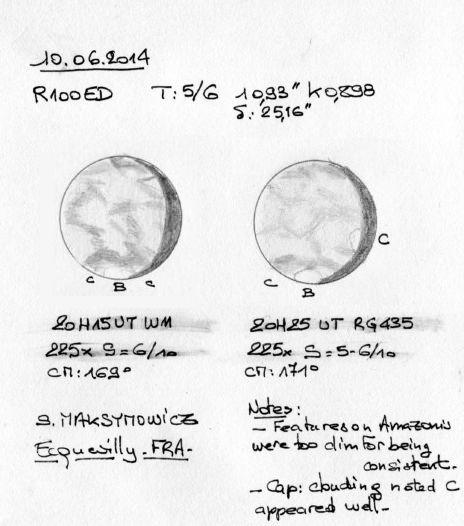 10.06.2014
R100ED T: 5/6 10,93" K 0,898
δ: 25,16"
C
C B C
C B
20H15 UT WM
225x S=6/10
CM: 169°
20H25 UT RG435
225x S=5-6/10
CM: 171°
S. MAKSYMOWICZ
Ecquevilly. FRA-
Notes:
- Features on Amazonis
were too dim for being
consistent.
- Cap: clouding noted C
appeared well-